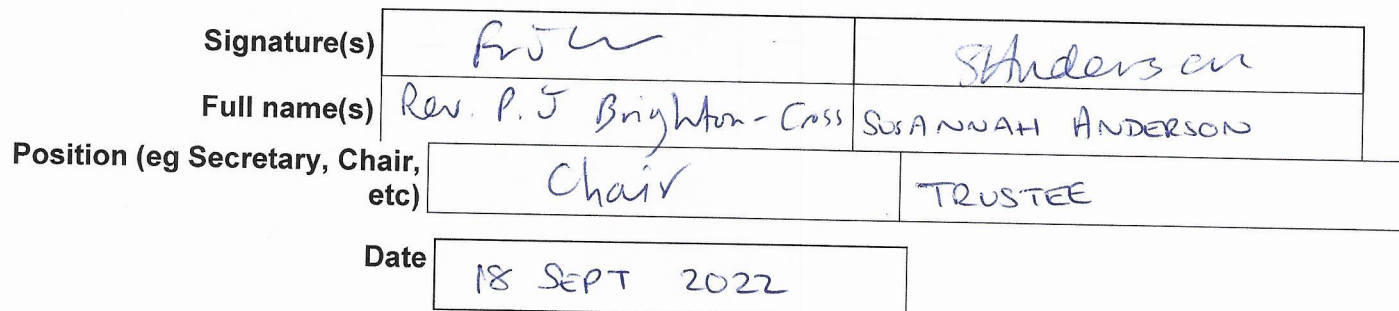 Signature(s) SAnderson
Full name(s) Rev. P. J Brighton-Cross SUSANNAH ANDERSON
Position (eg Secretary, Chair,
etc) Chair TRUSTEE
Date 18 SEPT 2022